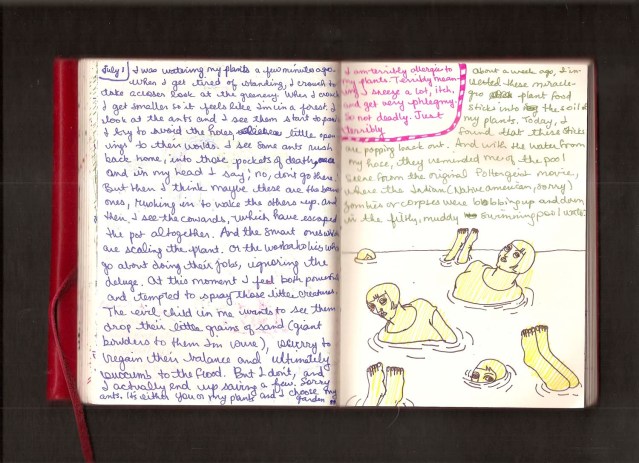 July 1
I was watering my plants a few minutes ago.
When I get tired of standing, I crouch to
take a closer look at the greenery. When I crouch
I get smaller so it feels like I'm in a forest. I
look at the ants and I see them start to panic
I try to avoid the holes, little open
ings to their worlds. I see some ants rush
back home, into those pockets of death,
and in my head I say; no, don't go there.
But then I think maybe these are the brave
ones, rushing in to wake the others up. and
then I see the cowards, which have escaped
the pot altogether. And the smart ones which
are scaling the plant. Or the workaholics who
go about doing their jobs, ignoring the
deluge. At this moment I feel both powerful
and tempted to spray those little creatures.
The evil child in me wants to see them
drop their little grains of sand (giant
bowlders to them I'm sure), scurry to
regain their balance and ultimately
succumb to the flood. But I don't, and
I actually end up saving a few. Sorry
ants. Its either you or my plants and I choose my
garden
I am terribly allergic to
my plants. Terribly mean-
ing I sneeze a lot, itch,
and get very phlegmy.
So not deadly. Just
terribly.
About a week ago, I in-
serted these miracle-
gro plant food
sticks into the soil of
my plants. Today, I
found that these sticks
are popping back out. And with the water from
my hose, they reminded me of the pool
scene from the original Poltergeist movie,
where the Indian (Native American, sorry)
zombies or corpses were bobbing up and down
in the filthy, muddy swimming pool water.